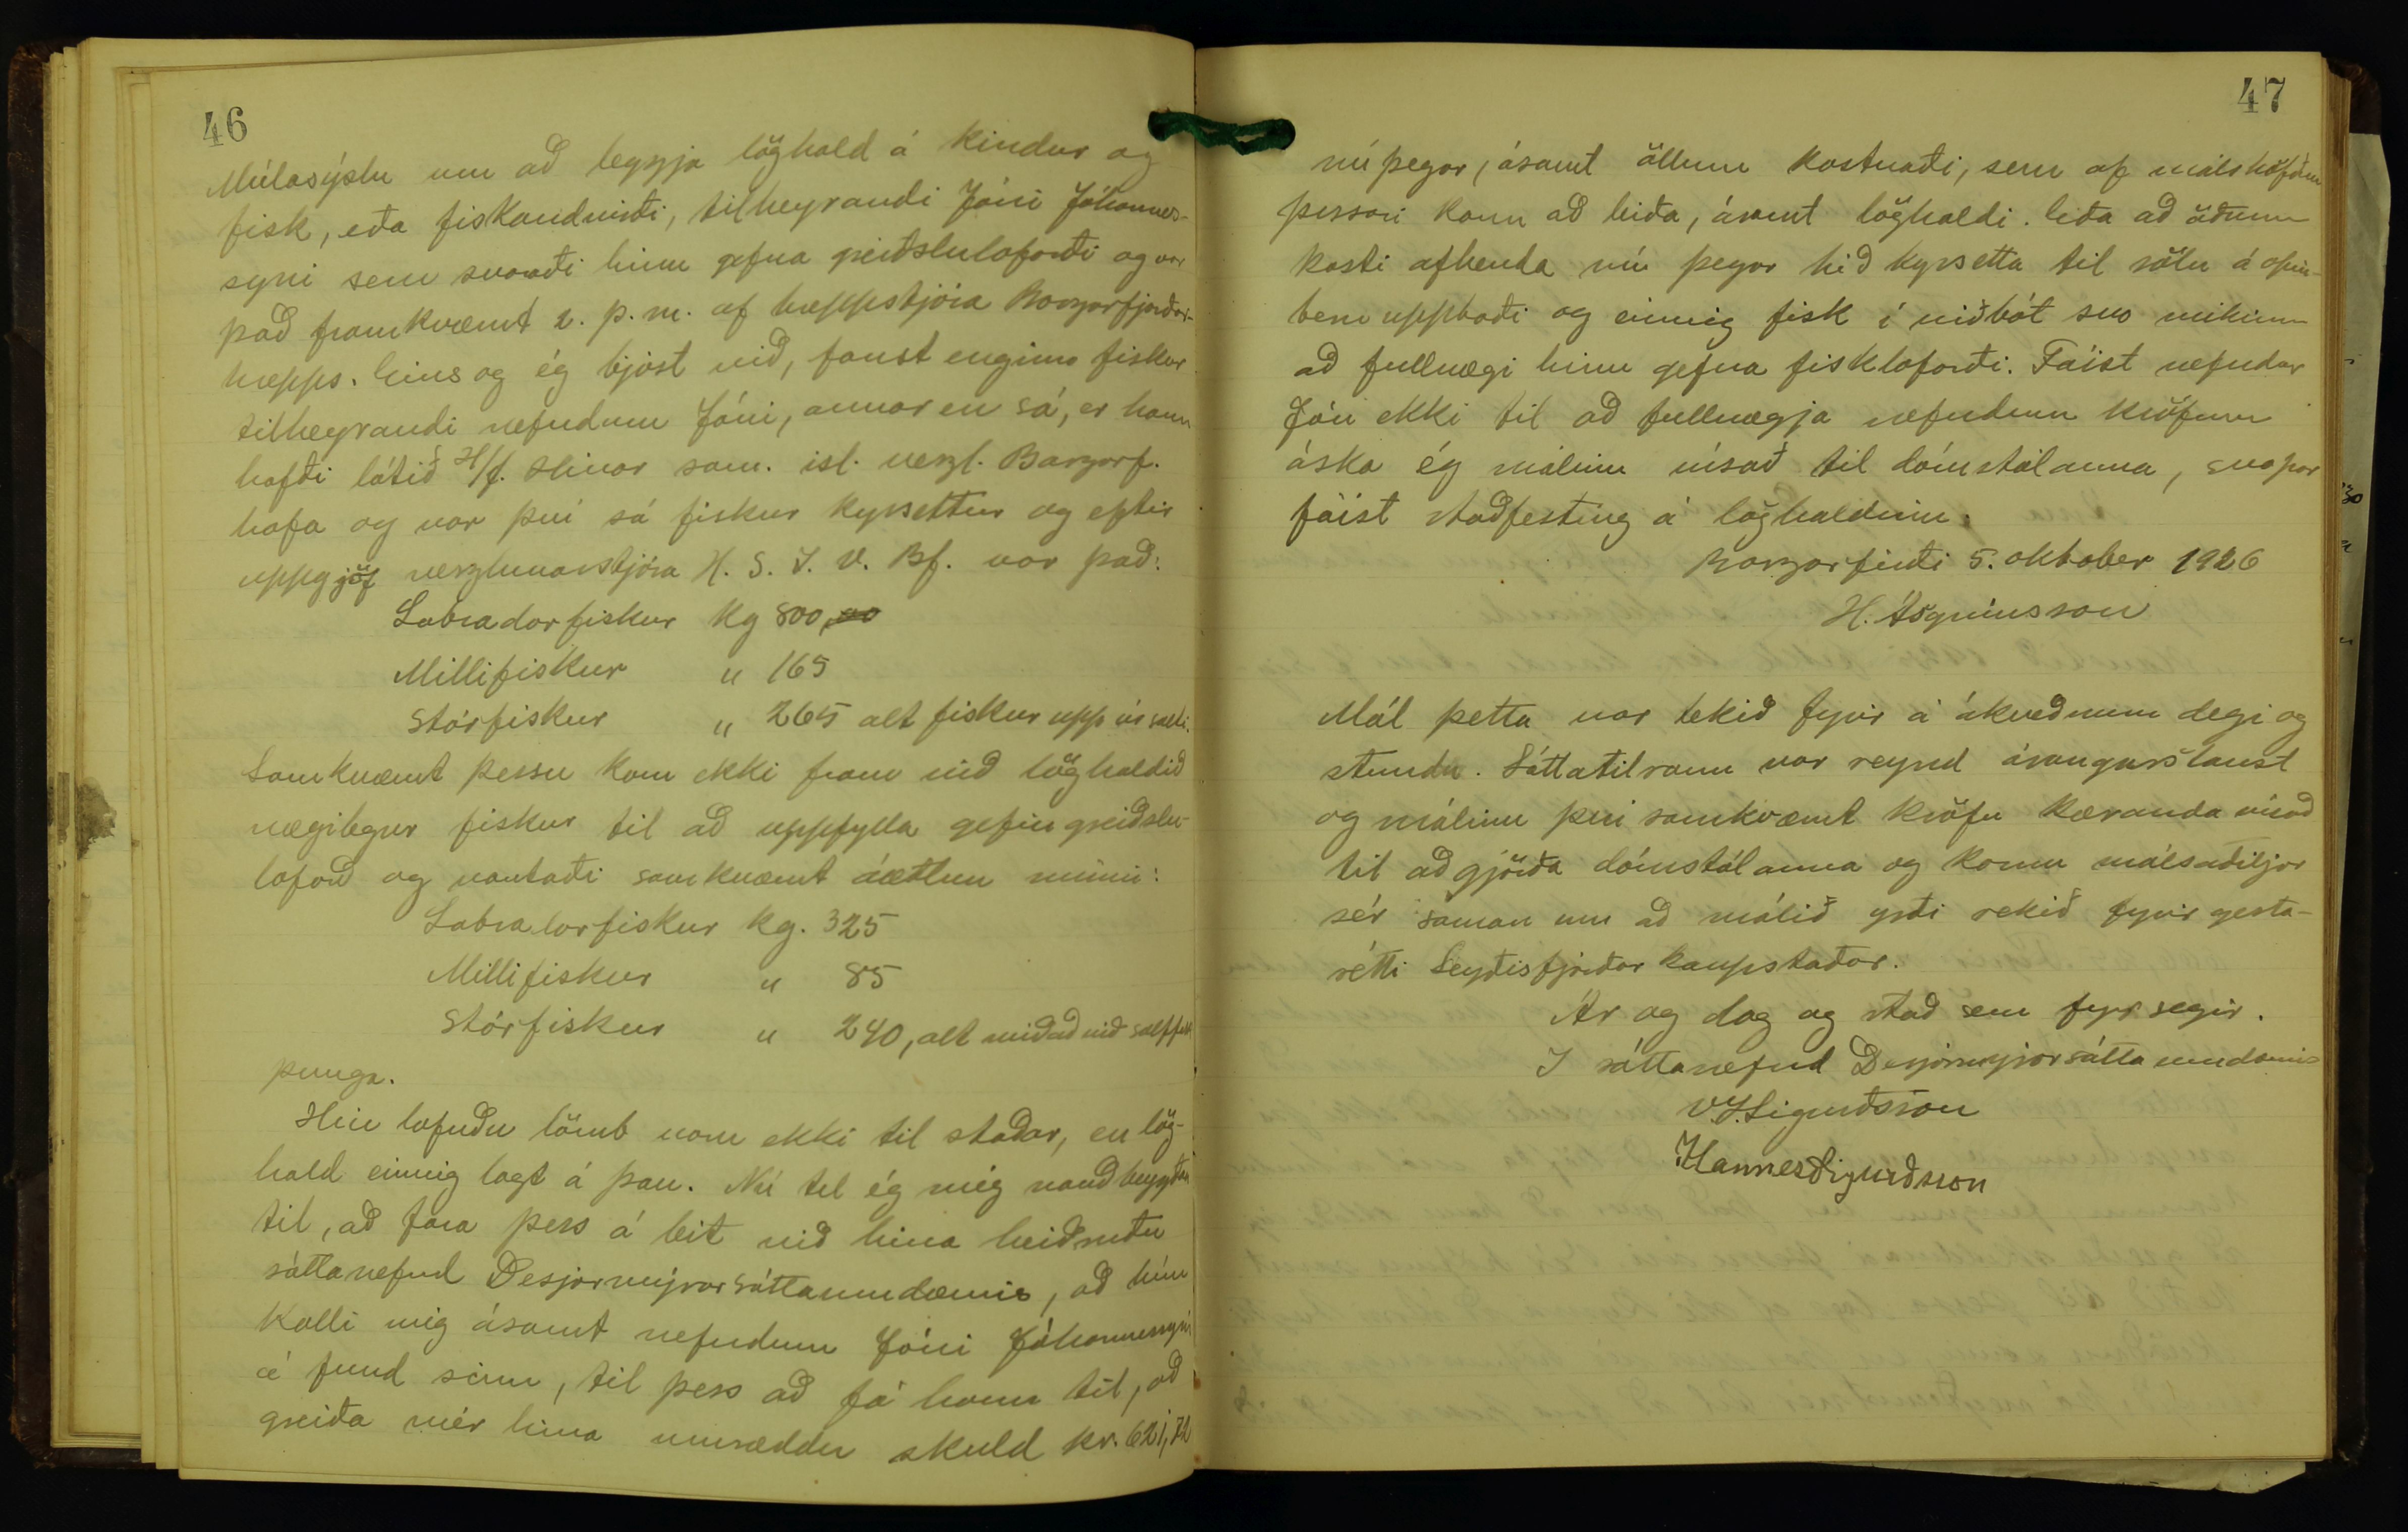 46
Múlasýslu um að leggja löghald á kindur og
fisk, eða fiskandvirði, tilheyrandi Jóni Jóhannes-
syni sem svaraði hinu gefna greiðsluloforði og var
það framkvæmt 2. þ. m. af hreppstjóra Borgarfjarðar-
hrepps. Eins og ég bjóst við, fanst enginn fiskur
tilheyrandi nefndum Jóni, annar en sá, er hann
hafði látið H/f. Hinar sam. ísl. verzl. Borgarf.
hafa og var því sá fiskur kyrsettur og eptir
uppgjöf verzlunarstjóra H. S. I. V. Bf. var það:
Labradorfiskur kg 800,00
Millifiskur " 165
Stórfiskur " 265 alt fiskur upp úr salti.
Samkvæmt þessu kom ekki fram við löghaldið
nægilegur fiskur til að uppfylla gefin greiðslu-
loforð og vantaði samkvæmt áætlun minni:
Labradorfiskur kg. 325
Millifiskur " 85
Stórfiskur " 240, alt miðað við
þunga.
Hin lofuðu lömb vom ekki til staðar, en lög-
hald einnig lagt á þau. Nú tel ég mig nauðbeygðan
til, að fara þess á leit við hina heiðruðu
sáttanefnd Desjarmýrarsáttaumdæmis, að hún
kalli mig ásamt nefndum Jóni Jóhannessyni
á fund sinn, til þess að fá hann til, að
greiða mér hina umræddu skuld kr. 621,72
47
nú þegar, ásamt öllum kostnaði, sem af málshöfðun
þessari kann að leiða, ásamt löghaldi. Eða að öðrum
kosti afhenda nú þegar hið kyrsetta til sölu á opin-
beru uppboði og einnig fisk í viðbót svo mikinn
að fullnægi hinu gefna fiskloforði. Fáist nefndur
Jón ekki til að fullnægja nefndum kröfum
áska ég málinu vísað til dómstólanna, svo þar
fáist staðfesting á löghaldinu.
Borgarfirði 5. október 1926
H. Ásgrímsson
Mál þetta var tekið fyrir á ákveðnum degi og
stundu. Sáttatilraun var reynd árangurslaust
og málinu því samkvæmt kröfu kæranda vísað
til aðgjörða dómstólanna og komu málsaðiljar
sér saman um að málið yrði rekið fyrir gesta-
rétti Seyðisfjarðarkaupstaðar.
Ár og dag og stað sem fyrr segir.
Í sáttanefnd Desjarmýrarsáttaumdæmis
V. J. Sigurðsson
Hannes Sigurðsson